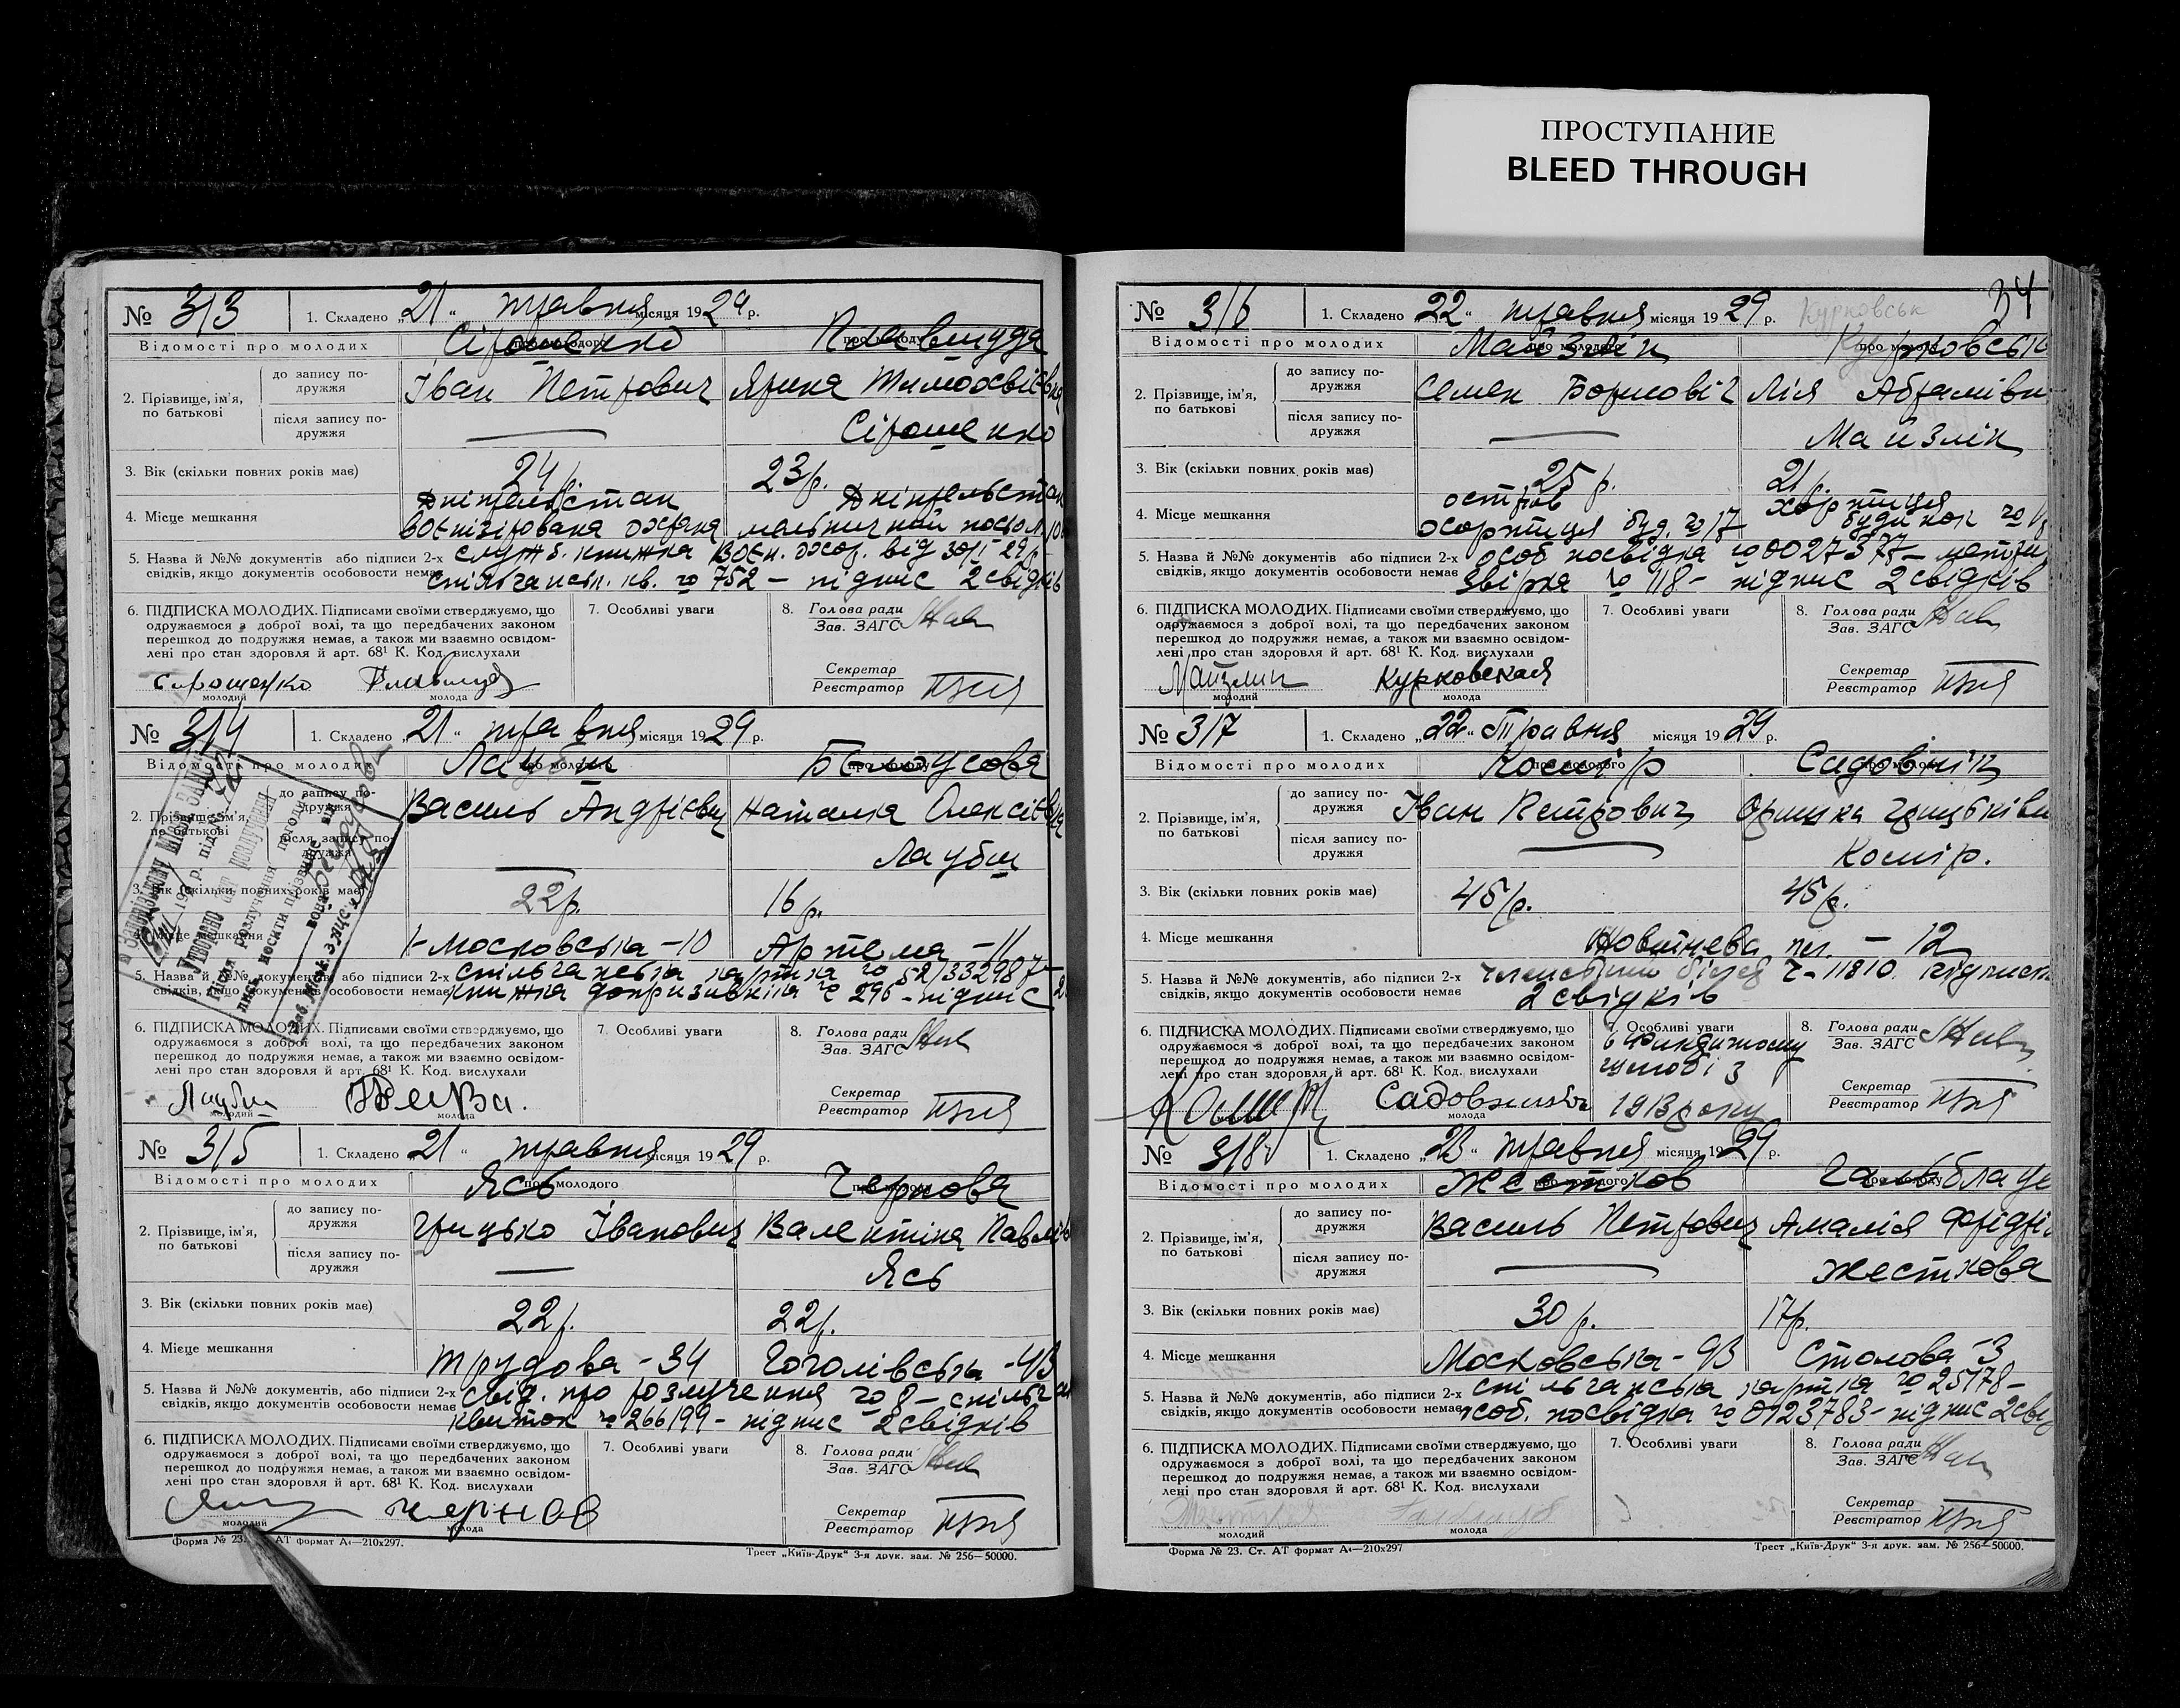 ПРОСТУПАНИЕ
BLEED THROUGH
№ 313 1. Складено „21“ травня місяця 1929 р.
Відомості про молодих про молодого Сірошенко про молоду
2. Прізвище, ім'я, по батькові
до запису подружжя Іван Петрович Ярина
після запису подружжя — Сірошенко
3. Вік (скільки повних років має) 24 р. 23 р.
4. Місце мешкання Дніпрельстан Дніпрельстан
воєнізірована охрана
5. Назва й №№ документів або підписи 2-х свідків, якщо документів особовости немає служб. книжка воєн. охор. від
кв. № 752 — підпис 2 свідків
6. ПІДПИСКА МОЛОДИХ. Підписами своїми стверджуємо, що
одружаємося з доброї волі, та що передбачених законом
перешкод до подружжя немає, а також ми взаємно освідом-
лені про стан здоровля й арт. 68¹ К. Код. вислухали
Сірошенко
молодий молода
7. Особливі уваги
8. Голова ради
Зав. ЗАГС
Секретар
Реєстратор
№ 314 1. Складено „21“ травня місяця 1929 р.
Відомості про молодих про молодого Лаубш про молоду Білоусова
2. Прізвище, ім'я, по батькові
до запису подружжя Василь Андрієвич Наталка Олексіївна
після запису подружжя — Лаубш
3. Вік (скільки повних років має) 22 р. 16 р.
4. Місце мешкання Московська – 10 Артема – 11
5. Назва й №№ документів, або підписи 2-х свідків, якщо документів особовости немає спільчанська картка № 52/332987 —
книжка допризивника № 296 – підпис 2
6. ПІДПИСКА МОЛОДИХ. Підписами своїми стверджуємо, що
одружаємося з доброї волі, та що передбачених законом
перешкод до подружжя немає, а також ми взаємно освідом-
лені про стан здоровля й арт. 68¹ К. Код. вислухали
Лаубш
молодий молода
7. Особливі уваги
8. Голова ради
Зав. ЗАГС
Секретар
Реєстратор
№ 315 1. Складено „21“ травня місяця 1929 р.
Відомості про молодих про молодого Ясь про молоду Чернова
2. Прізвище, ім'я, по батькові
до запису подружжя Грицько Іванович Валентіна
після запису подружжя — Ясь
3. Вік (скільки повних років має) 22 р. 22 р.
4. Місце мешкання Трудова – 34 Гоголівська – 43
5. Назва й №№ документів, або підписи 2-х свідків, якщо документів особовости немає свід. про розлучення № 8 —
квиток № 266199 – підпис 2 свідків
6. ПІДПИСКА МОЛОДИХ. Підписами своїми стверджуємо, що
одружаємося з доброї волі, та що передбачених законом
перешкод до подружжя немає, а також ми взаємно освідом-
лені про стан здоровля й арт. 68¹ К. Код. вислухали
чернов
молодий молода
7. Особливі уваги
8. Голова ради
Зав. ЗАГС
Секретар
Реєстратор
Форма № 23. АТ формат А4—210х297. Трест „Київ-Друк“ 3-я друк. зам. № 256—50000.
34
№ 316 1. Складено „22“ травня місяця 1929 р. Курковськ
Відомості про молодих про молодого Майзлік про молоду Курковськ
2. Прізвище, ім'я, по батькові
до запису подружжя Семен Борисовіч Лія Абрамівн
після запису подружжя — Майзлік
3. Вік (скільки повних років має) 25 р. 21 р.
4. Місце мешкання острів Хортиця
Хортиця буд. № 17 будинок №
5. Назва й №№ документів або підписи 2-х свідків, якщо документів особовости немає особ посвідка № 0027377 —
№ 118 – підпис 2 свідків
6. ПІДПИСКА МОЛОДИХ. Підписами своїми стверджуємо, що
одружаємося з доброї волі, та що передбачених законом
перешкод до подружжя немає, а також ми взаємно освідом-
лені про стан здоровля й арт. 68¹ К. Код. вислухали
Майзлин Курковская
молодий молода
7. Особливі уваги
8. Голова ради
Зав. ЗАГС
Секретар
Реєстратор
№ 317 1. Складено „22“ Травня місяця 1929 р.
Відомості про молодих про молодого Кошір про молоду Садовнік
2. Прізвище, ім'я, по батькові
до запису подружжя Іван Петрович Оришка Грицьківн
після запису подружжя — Кошір.
3. Вік (скільки повних років має) 45 р. 45 р.
4. Місце мешкання Жовтнева пл. – 12
5. Назва й №№ документів, або підписи 2-х свідків, якщо документів особовости немає членський білет Ч – 11810. підписи
2 свідків
6. ПІДПИСКА МОЛОДИХ. Підписами своїми стверджуємо, що
одружаємося з доброї волі, та що передбачених законом
перешкод до подружжя немає, а також ми взаємно освідом-
лені про стан здоровля й арт. 68¹ К. Код. вислухали
молодий молода
7. Особливі уваги
в фактичному
шлюбі з
1913 року
8. Голова ради
Зав. ЗАГС
Секретар
Реєстратор
№ 318 1. Складено „23“ травня місяця 1929 р.
Відомості про молодих про молодого Жестков про молоду
2. Прізвище, ім'я, по батькові
до запису подружжя Василь Петрович Амалія Фрідрі
після запису подружжя — Жесткова
3. Вік (скільки повних років має) 30 р. 17 р.
4. Місце мешкання Московська – 93 Столова – 3
5. Назва й №№ документів, або підписи 2-х свідків, якщо документів особовости немає спільчанська картка № 25178 —
особ. посвідка № 0123783 – підпис 2 сві
6. ПІДПИСКА МОЛОДИХ. Підписами своїми стверджуємо, що
одружаємося з доброї волі, та що передбачених законом
перешкод до подружжя немає, а також ми взаємно освідом-
лені про стан здоровля й арт. 68¹ К. Код. вислухали
молодий молода
7. Особливі уваги
8. Голова ради
Зав. ЗАГС
Секретар
Реєстратор
Форма № 23. Ст. АТ формат А4—210х297 Трест „Київ-Друк“ 3-я друк. зам. № 256—50000.